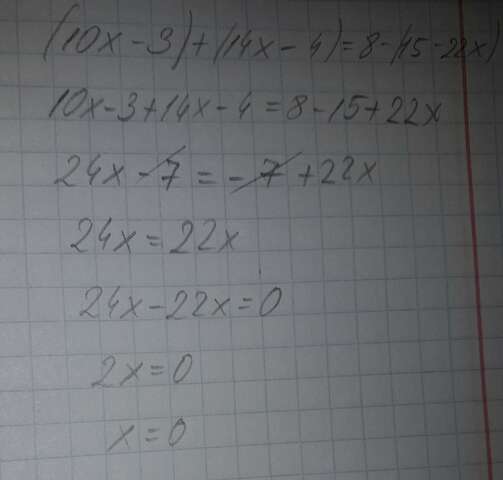 (10x-3)+(14x-4)=8-(15-22x)
10x-3+14x-4=8-15+22x
24x-7=-7+22x
24x=22x
24x-22x=0
2x=0
x=0